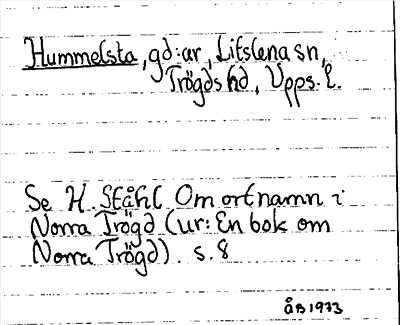 Hummelsta, gd:ar, Litslena sn,
Trögds hd, Upps. l.
Se H. Ståhl Om ortnamn i
Norra Trögd (ur: En bok om
Norra Trögd) s. 8
åB 1973